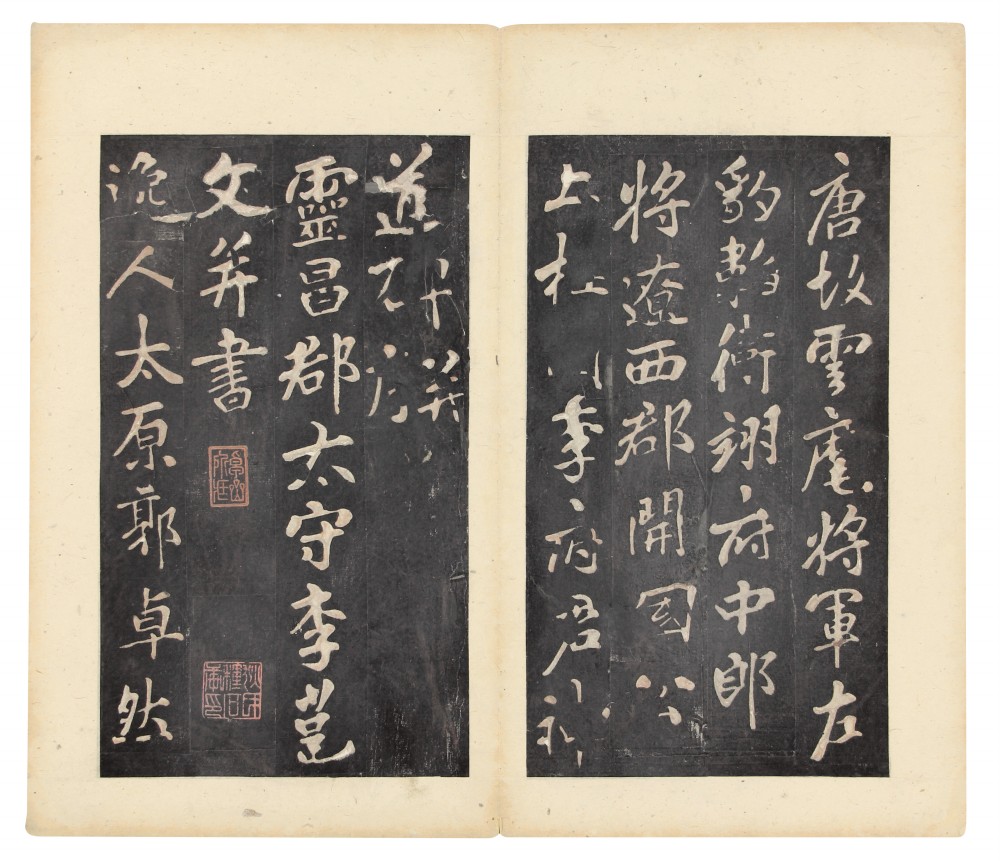 唐故雲麾將軍左
豹韜衛翊府中郎
將遼西郡開國公
上柱李府君神
道
靈昌郡太守李邕
文并書
逸人太原郭卓然